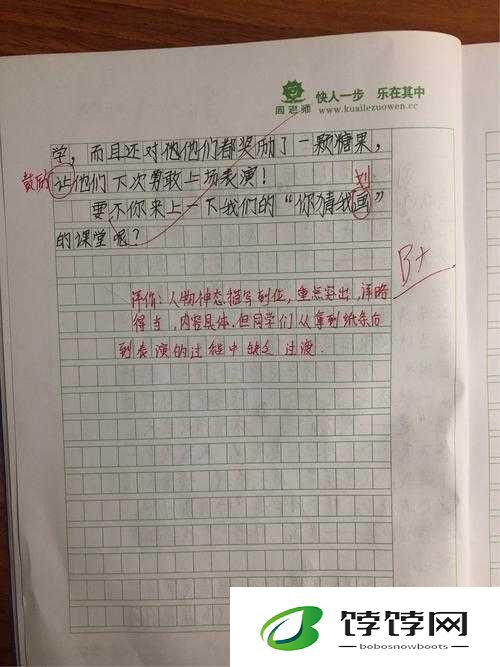 周老师
快人一步 乐在其中
www.kuailezuowen.cc
学，而且还对他他们都奖励了一颗糖果，
鼓励
让他们下次勇敢上场表演！
划
要不你来上一下我们的“你猜我画”
的课堂呢？
B+
评价：人物神态描写到位，重点突出，详略
得当，内容具体．但同学们从拿到纸条后
到表演的过程中缺乏过渡．
饽饽网
bobosnowboots.com